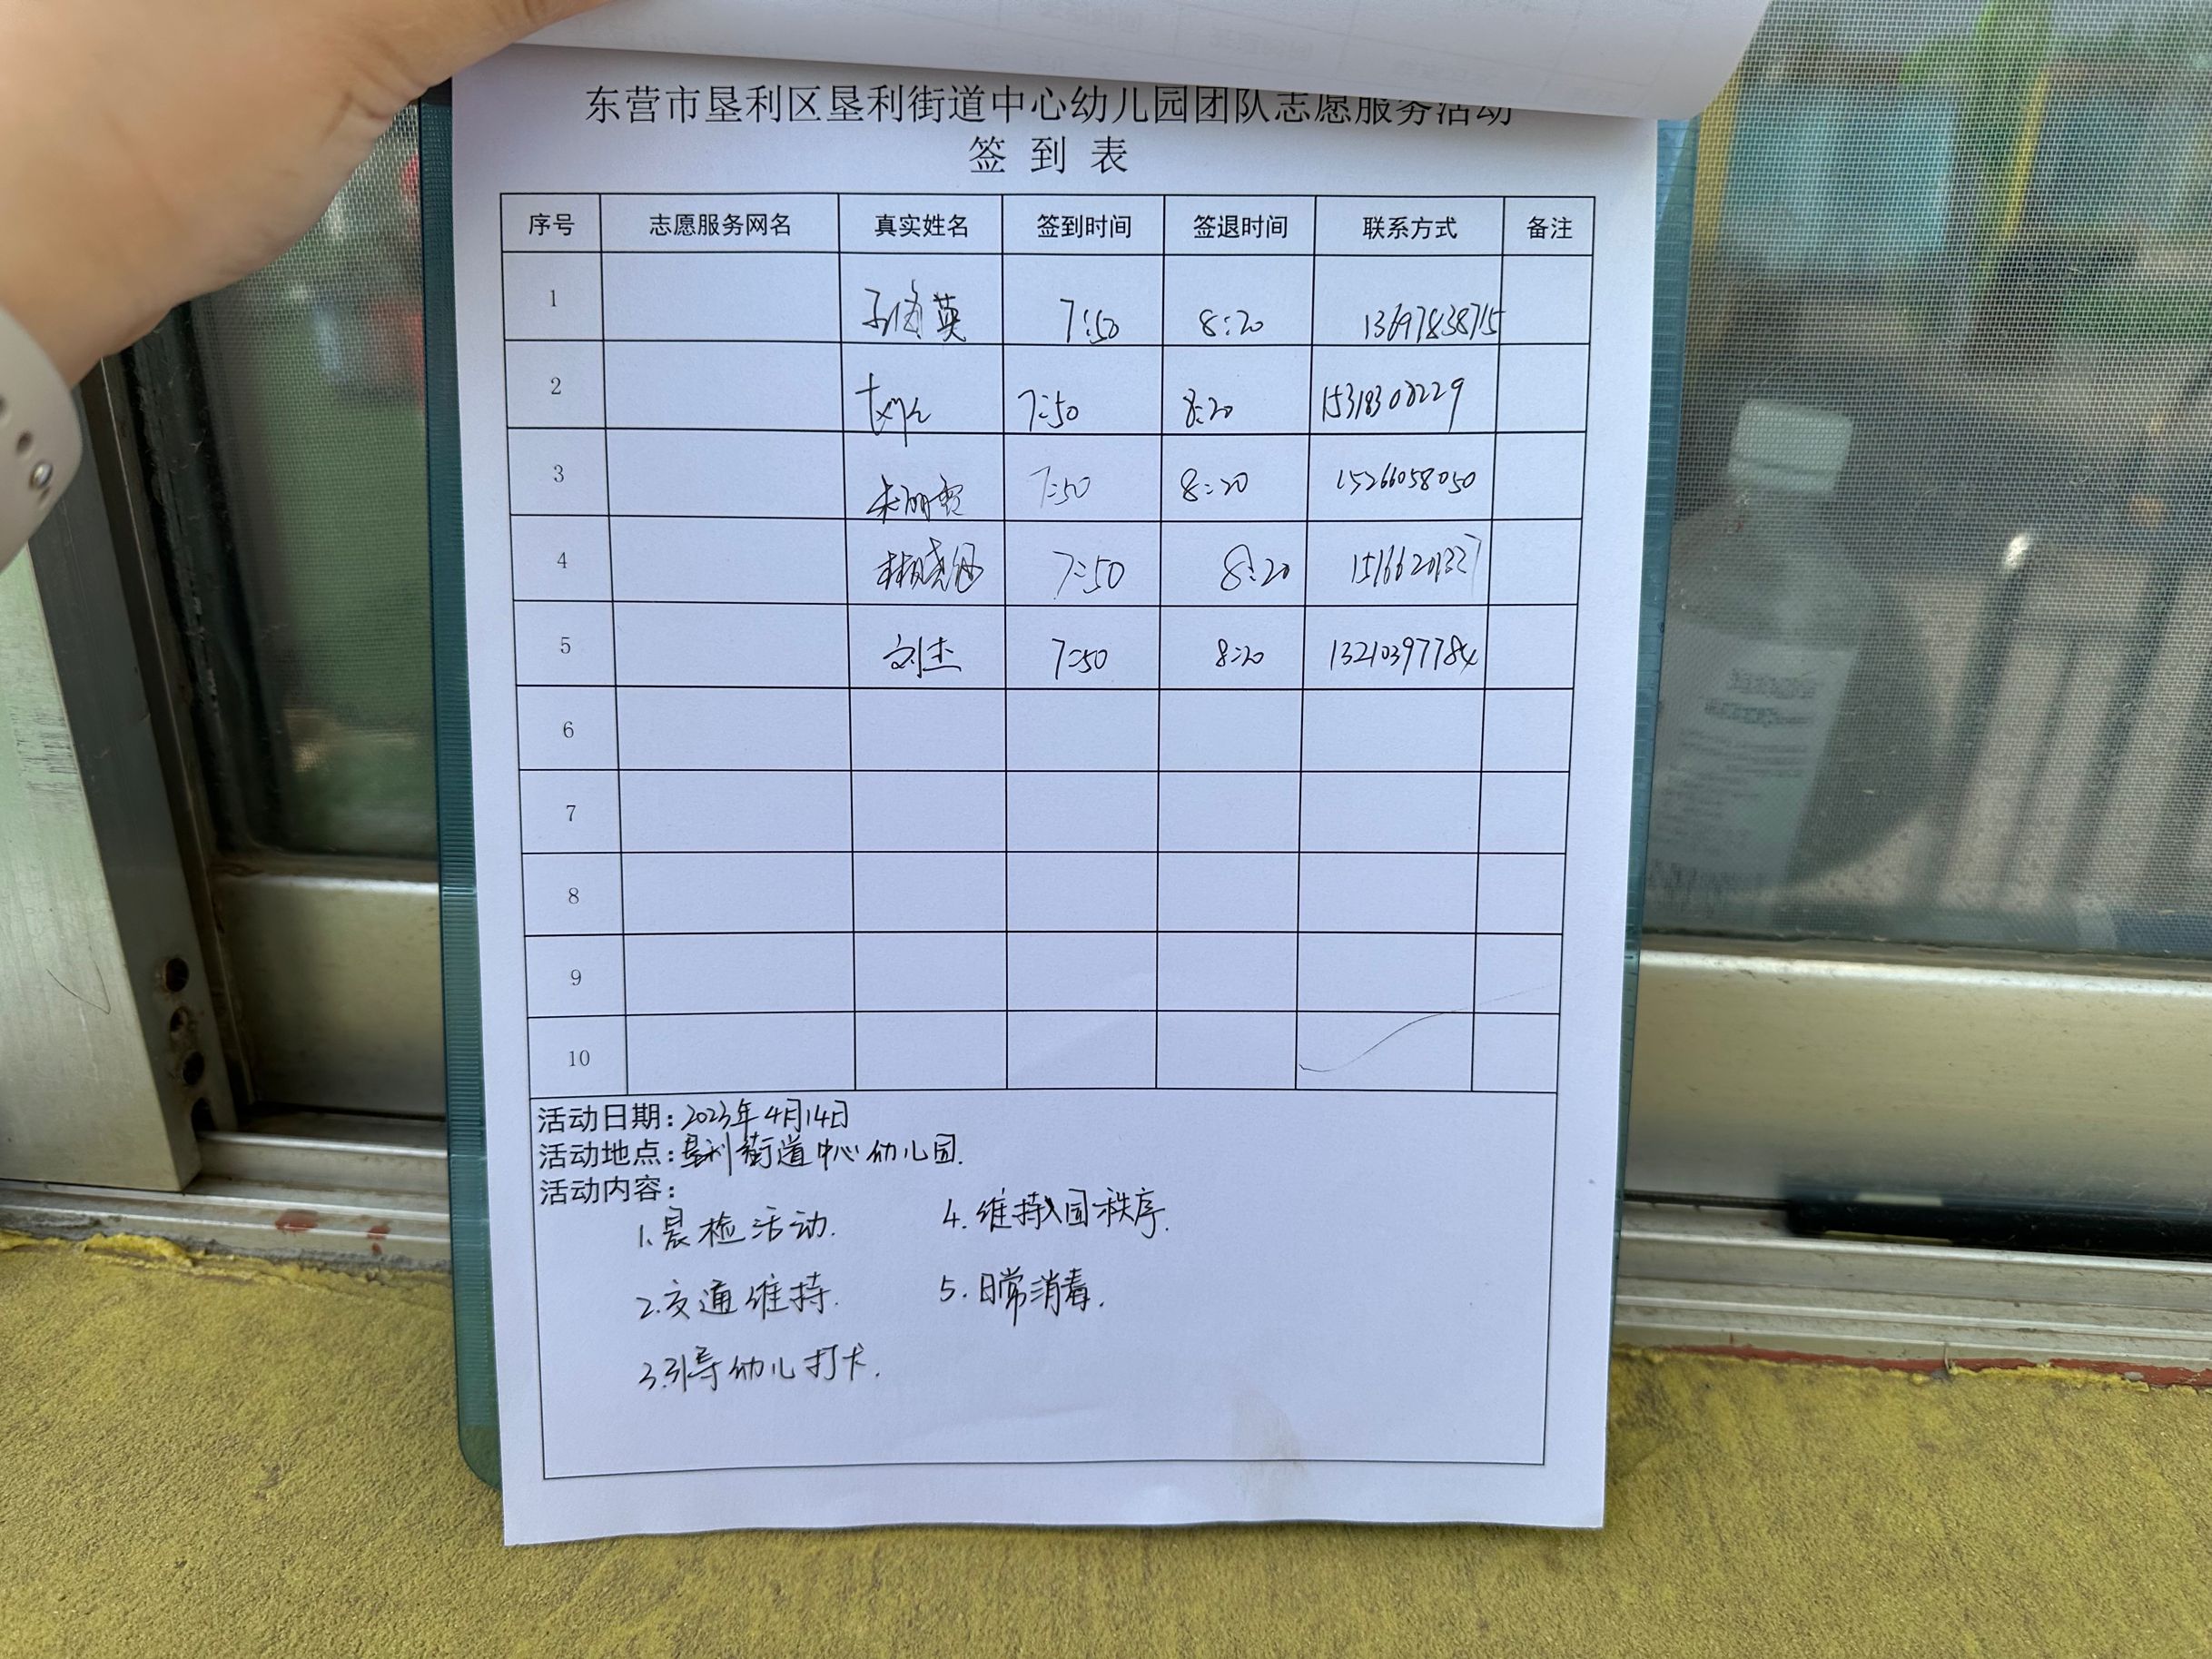 东营市垦利区垦利街道中心幼儿园团队志愿服务活动
签 到 表
序号 志愿服务网名 真实姓名 签到时间 签退时间 联系方式 备注
1 英 7:50 8:20 13697838715
2 7:50 8:20 15318308229
3 7:50 8:20 15266058050
4 7:50 8:20
5 刘杰 7:50 8:20 13210397784
6
7
8
9
10
活动日期：2023年4月14日
活动地点：垦利街道中心幼儿园.
活动内容：
1.晨检活动. 4.维持入园秩序.
2.交通维持. 5.日常消毒.
3.引导幼儿打卡.